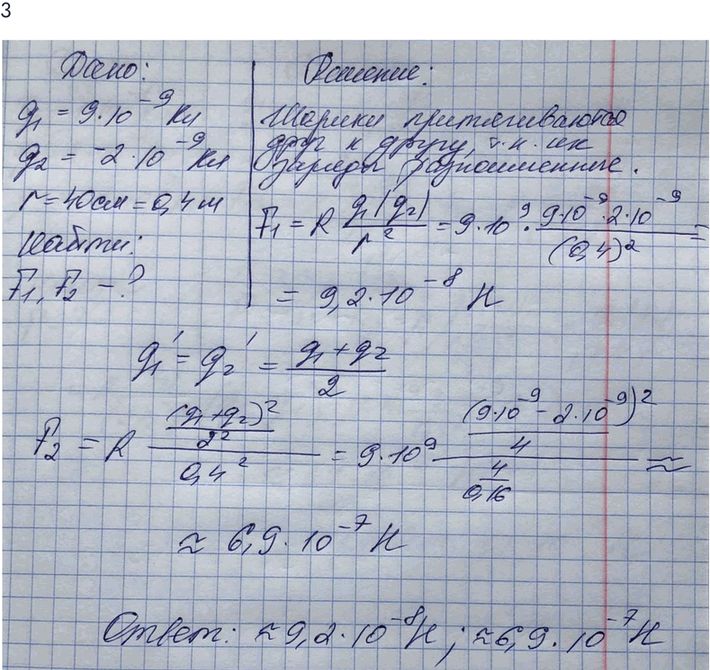 3
Дано:
q1 = 9·10^-9 Кл
q2 = -2·10^-9 Кл
r = 40см = 0,4 м
Найти:
F1, F2 - ?
Решение:
Шарики притягиваются
друг к другу, т.к. их
заряды разноименные.
F1 = k q1|q2| / r^2 = 9·10^9 · 9·10^-9·2·10^-9 / (0,4)^2 =
= 9,2·10^-8 Н
q1' = q2' = (q1+q2) / 2
F2 = k ((q1+q2)^2 / 2^2) / 0,4^2 = 9·10^9 ((9·10^-9 - 2·10^-9)^2 / 4) / (4 / 0,16) ≈
≈ 6,9·10^-7 Н
Ответ: ≈9,2·10^-8 Н; ≈6,9·10^-7 Н